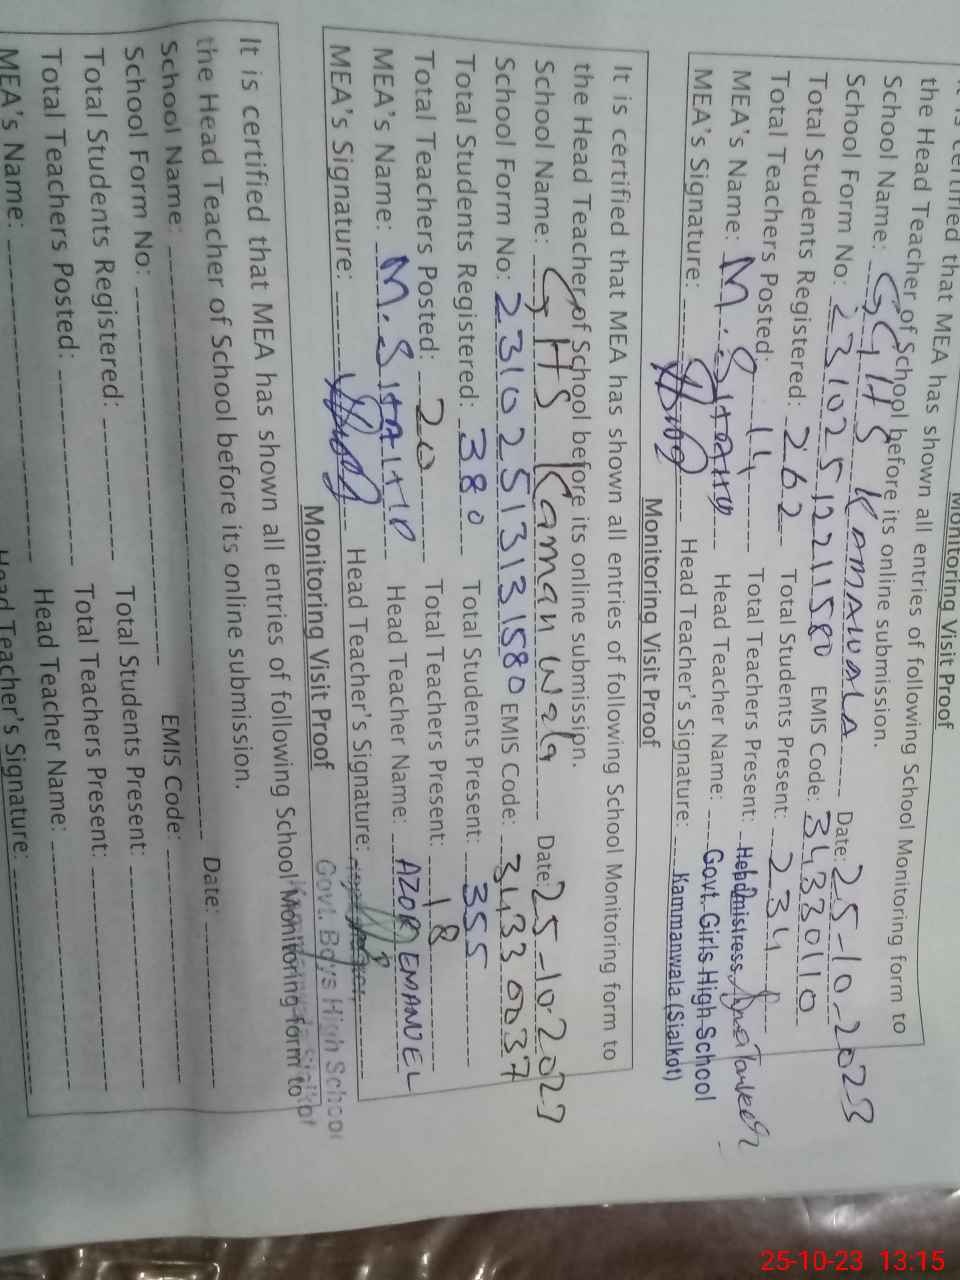 Monitoring Visit Proof
certified that MEA has shown all entries of following School Monitoring form to
the Head Teacher of School before its online submission.
School Name: GGHS KAMAWALA Date: 25-10-2023
School Form No: 23102512211580 EMIS Code: 34330110
Total Students Registered: 262 Total Students Present: 234
Total Teachers Posted: 14 Total Teachers Present:
MEA's Name: M. Head Teacher Name:
Headmistress
MEA's Signature: Head Teacher's Signature:
Govt. Girls High School
Kammanwala (Sialkot)
Monitoring Visit Proof
It is certified that MEA has shown all entries of following School Monitoring form to
the Head Teacher of School before its online submission.
School Name: GHS Kamanwala Date: 25-10-2023
School Form No: 23102513131580 EMIS Code: 34330037
Total Students Registered: 380 Total Students Present: 355
Total Teachers Posted: 20 Total Teachers Present: 18
MEA's Name: M. Head Teacher Name: AZOR EMANUEL
MEA's Signature: Head Teacher's Signature:
Govt. Boys High School
Monitoring Visit Proof
It is certified that MEA has shown all entries of following School Monitoring form to
the Head Teacher of School before its online submission.
School Name: Date:
School Form No: EMIS Code:
Total Students Registered: Total Students Present:
Total Teachers Posted: Total Teachers Present:
MEA's Name: Head Teacher Name:
Head Teacher's Signature:
25-10-23 13:15